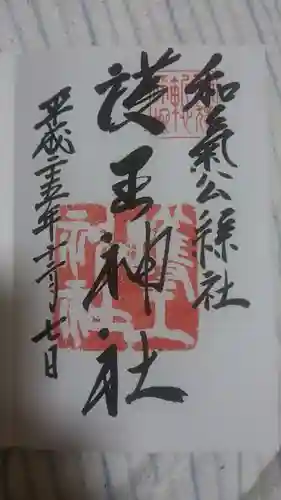 和氣公緑社
護王神社
平成二十五年十二月七日
護王
神社